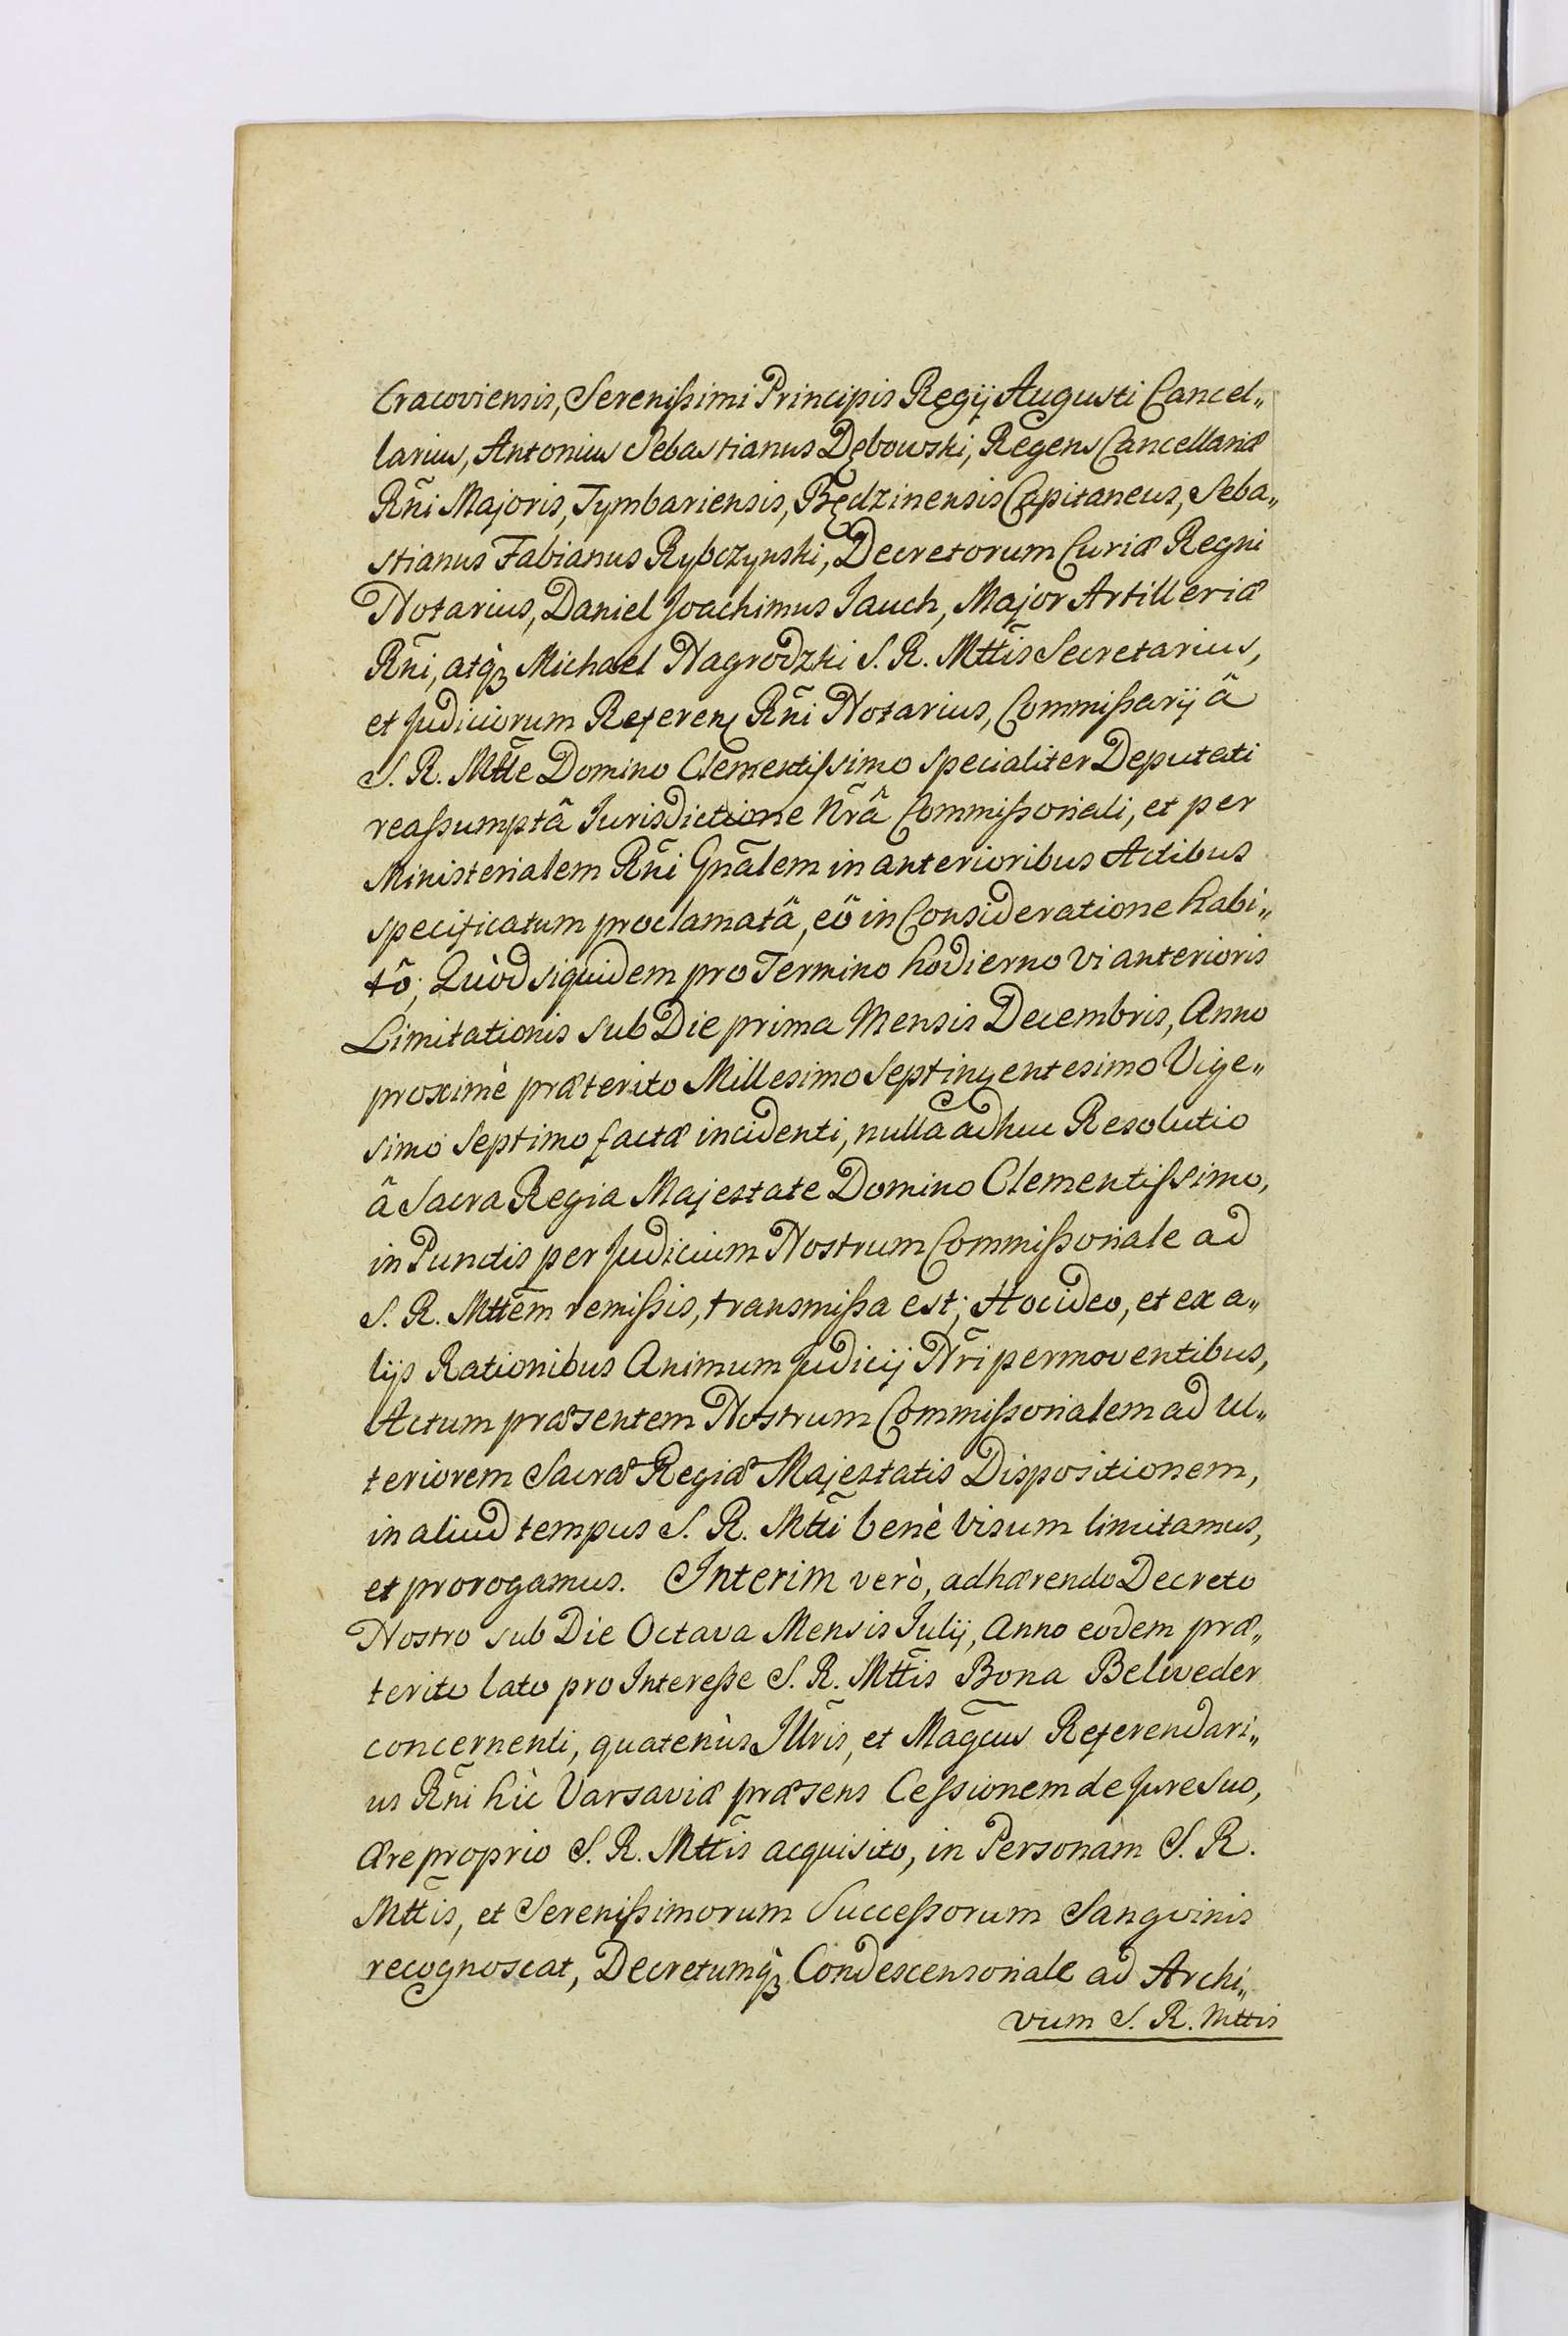 Cracoviensis, Serenißimi Principis Regij Augusti Cancel„
larius, Antonius Sebastianus Dębowski, Regens Cancellariæ
Rñi Majoris, Tymbariensis, Będzinensis Capitaneus, Seba„
stianus Fabianus Rybczynski, Decretorum Curiæ Regni
Notarius, Daniel Joachimus Jauch, Major Artilleriæ
Rñi, atqꝫ Michael Nagrodzki S. R. Mttis Secretarius,
et Judiciorum Referen̄ Rñi Notarius, Commißarij â
S. R. Mtte Domino Clementißimo specialiter Deputati
reaßumptâ Jurisdictione Nrâ Commißoriali, et per
Ministerialem Rñi Gnãlem in anterioribus Actibus
specificatum proclamatâ, eô in Consideratione habi„
tô; Quòd siquidem pro Termino hodierno vi anterioris
Limitationis sub Die prima Mensis Decembris, Anno
proximè præterito Millesimo Septingentesimo Vige„
simo Septimo factæ incidenti, nulla adhuc Resolutio
â Sacra Regia Majestate Domino Clementißimo,
in Punctis per Judicium Nostrum Commißoriale ad
S. R. Mttem remißis, transmißa est; Hoc ideo, et ex a„
lijs Rationibus Animum Judicij Nri permoventibus,
Actum præsentem Nostrum Commißorialem ad ul„
teriorem Sacræ Regiæ Majestatis Dispositionem,
in aliud tempus S. R. Mtti benè visum limitamus,
et prorogamus. Interim verò, adhærendo Decreto
Nostro sub Die Octava Mensis Julij, Anno eodem præ„
terito lato pro Intereße S. R. Mttis Bona Belweder
concernenti, quatenùs Illris, et Magcus Referendari„
us Rñi hìc Varsaviæ præsens Ceßionem de Jure suo,
ære proprio S. R. Mttis acquisito, in Personam S. R.
Mttis, et Serenißimorum Succeßorum Sangvinis
recognoscat, Decretumqꝫ Condescensoriale ad Archi„
vum S. R. Mttis